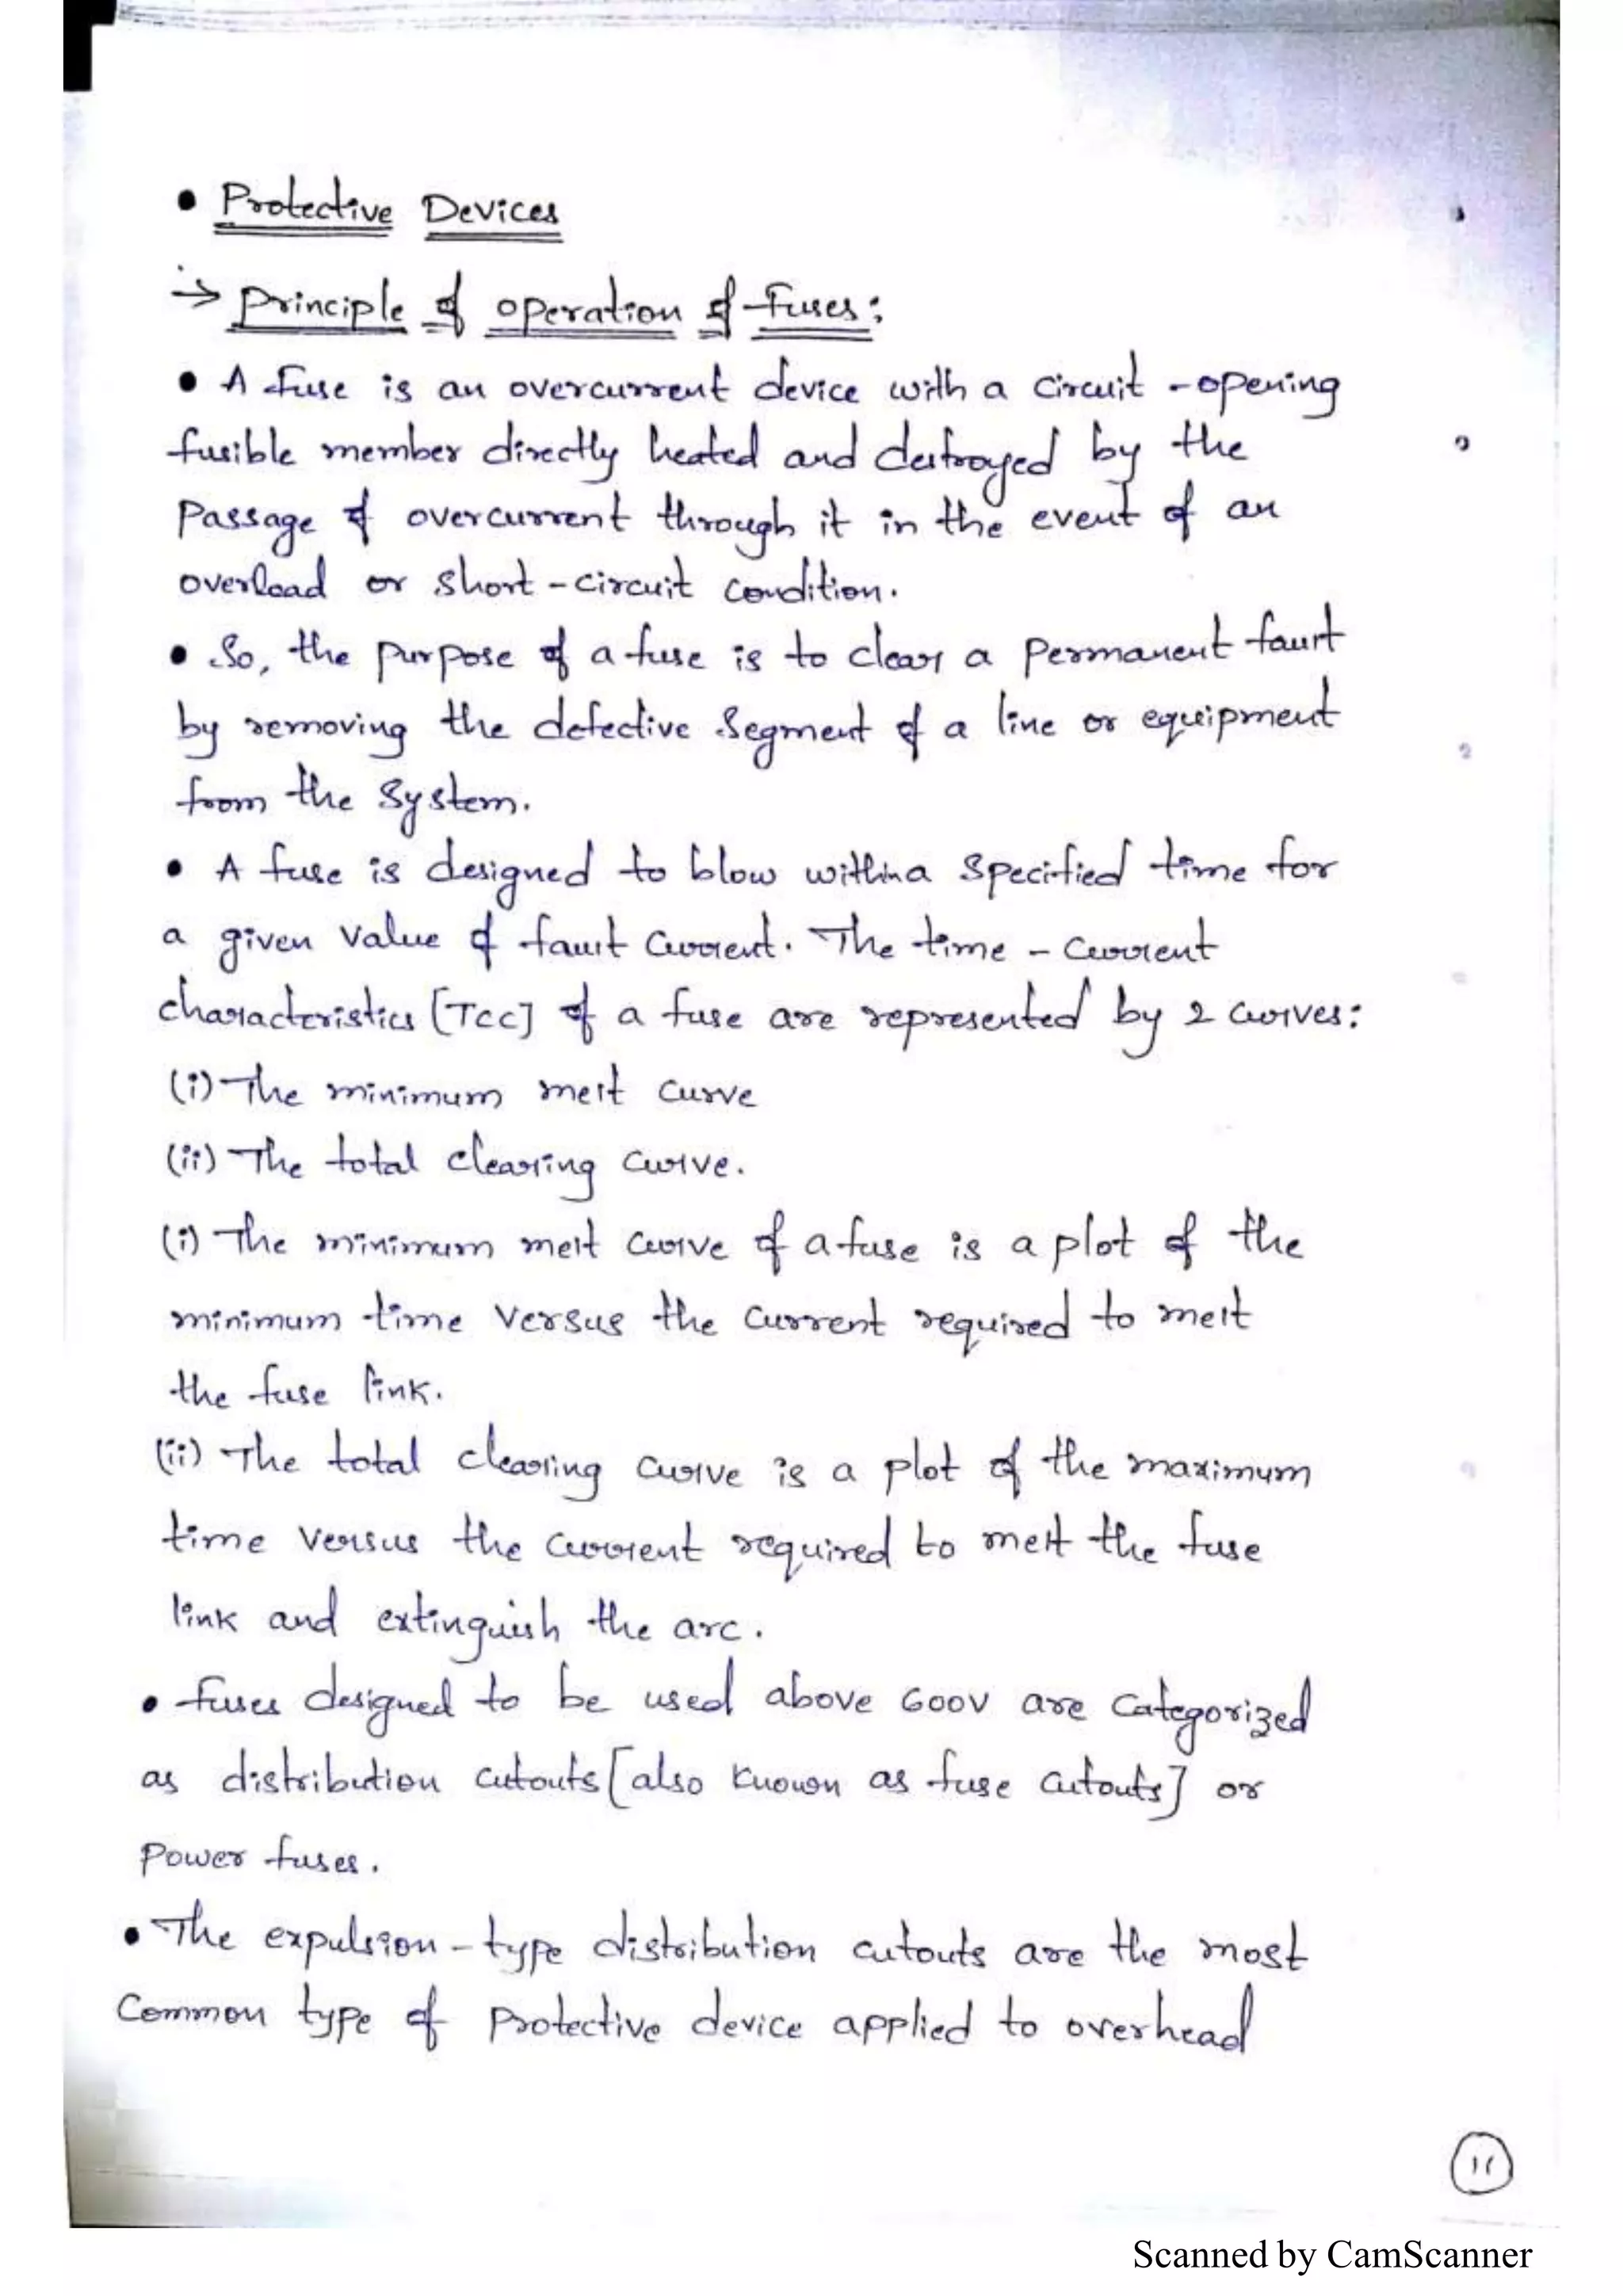 • Protective Devices
→ Principle of operation of Fuses:
• A Fuse is an overcurrent device with a circuit-opening
fusible member directly heated and destroyed by the
Passage of overcurrent through it in the event of an
overload or short-circuit condition.
• So, the purpose of a fuse is to clear a permanent fault
by removing the defective segment of a line or equipment
from the system.
• A fuse is designed to blow within a specified time for
a given value of fault current. The time - current
characteristics [TCC] of a fuse are represented by 2 curves:
(i) The minimum melt curve
(ii) The total clearing curve.
(i) The minimum melt curve of a fuse is a plot of the
minimum time versus the current required to melt
the fuse link.
(ii) The total clearing curve is a plot of the maximum
time versus the current required to melt the fuse
link and extinguish the arc.
• Fuses designed to be used above 600V are categorized
as distribution cutouts [also known as fuse cutouts] or
power fuses.
• The expulsion-type distribution cutouts are the most
common type of protective device applied to overhead
11
Scanned by CamScanner